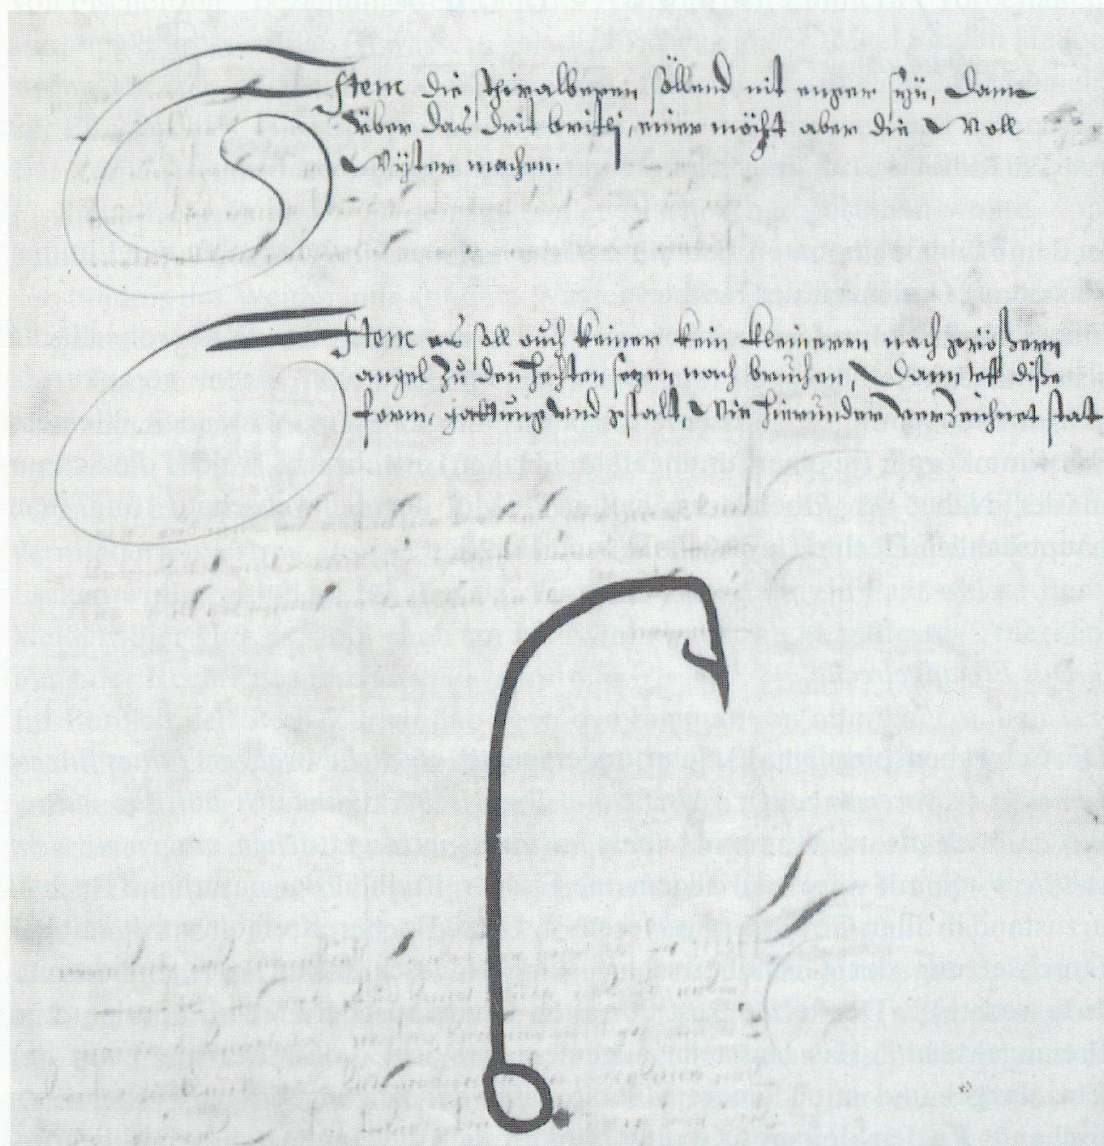 Item die schwalberen söllend nit enger syn, dann
über das drit brittlj, einer möcht aber die woll
wyter machen.
Item es soll ouch keiner kein kleineren nach größern
angel zů den hechten setzen nach bruchen, dann uff dise
form, gattung vnd gstalt, wie hierunder verzeichnet stat